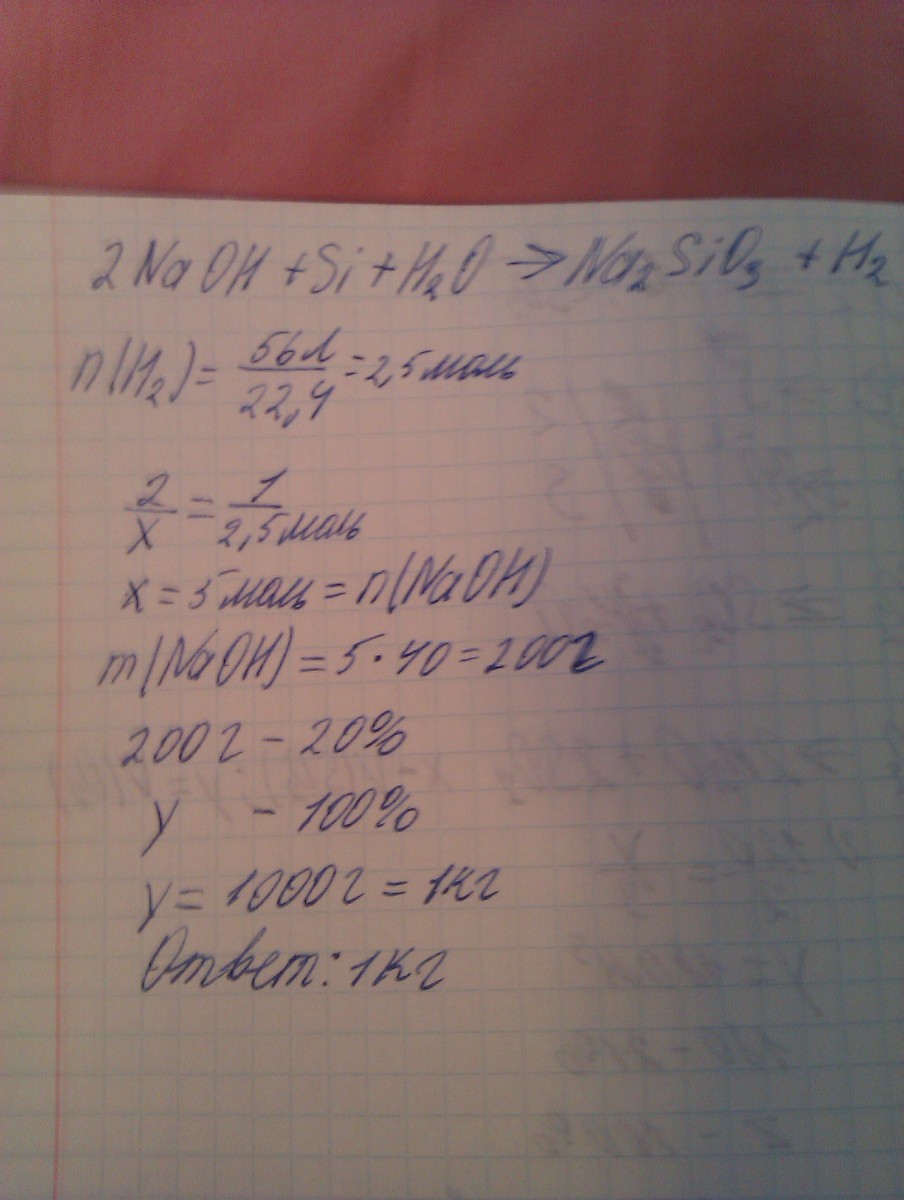 2NaOH + Si + H₂O → Na₂SiO₃ + H₂
n(H₂) = 56л/22,4 = 2,5 моль
2/x = 1/2,5 моль
x = 5 моль = n(NaOH)
m(NaOH) = 5 · 40 = 200г
200г – 20%
y – 100%
y = 1000г = 1кг
Ответ: 1кг